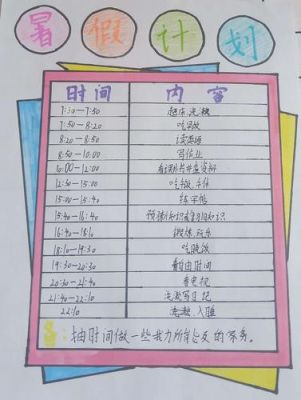 暑假计划
时间 内容
7:30—7:50 起床,洗漱
7:50—8:20 吃早饭
8:20—8:50 读英语
8:50—10:00 写作业
10:00—12:00 看课外书
12:30—15:00 吃午饭,午休
15:00—15:40 练字帖
15:40—16:40 预习知识或复习旧知识
16:40—18:10 锻炼,玩乐
18:10—19:30 吃晚饭
19:30—20:30 自由时间
20:30—21:40 看电视
21:40—22:10 洗漱写日记
22:10 洗漱、入睡
备:抽时间做一些我力所能及的家务。